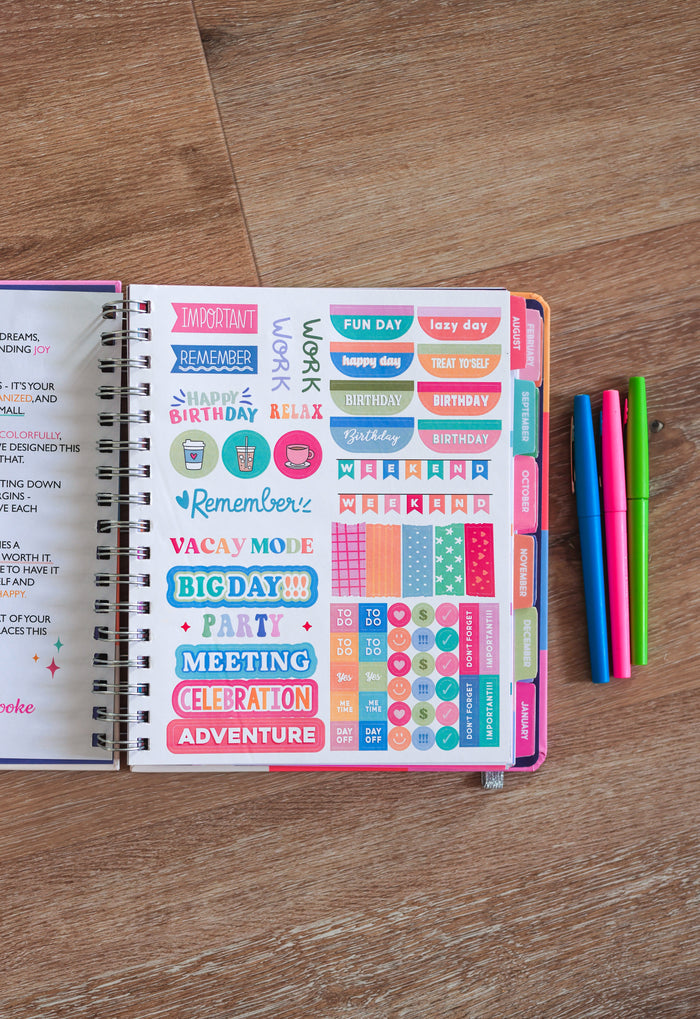 DREAMS,
NDING JOY
S - IT'S YOUR
ANIZED, AND
MALL.
COLORFULLY,
VE DESIGNED THIS
THAT.
TTING DOWN
RGINS -
VE EACH
ES A
WORTH IT.
E TO HAVE IT
ELF AND
HAPPY.
AT OF YOUR
LACES THIS
ooke
IMPORTANT
REMEMBER
WORK
WORK
HAPPY
BIRTHDAY
RELAX
Remember
VACAY MODE
BIG DAY!!!
PARTY
MEETING
CELEBRATION
ADVENTURE
FUN DAY
lazy day
happy day
TREAT YO'SELF
BIRTHDAY
BIRTHDAY
Birthday
BIRTHDAY
WEEKEND
WEEKEND
TO DO
TO DO
$
DON'T FORGET
IMPORTANT!!!
TO DO
TO DO
!!!
Yes
Yes
$
ME TIME
ME TIME
!!!
DON'T FORGET
IMPORTANT!!!
$
DAY OFF
DAY OFF
!!!
AUGUST
FEBRUARY
SEPTEMBER
OCTOBER
NOVEMBER
DECEMBER
JANUARY